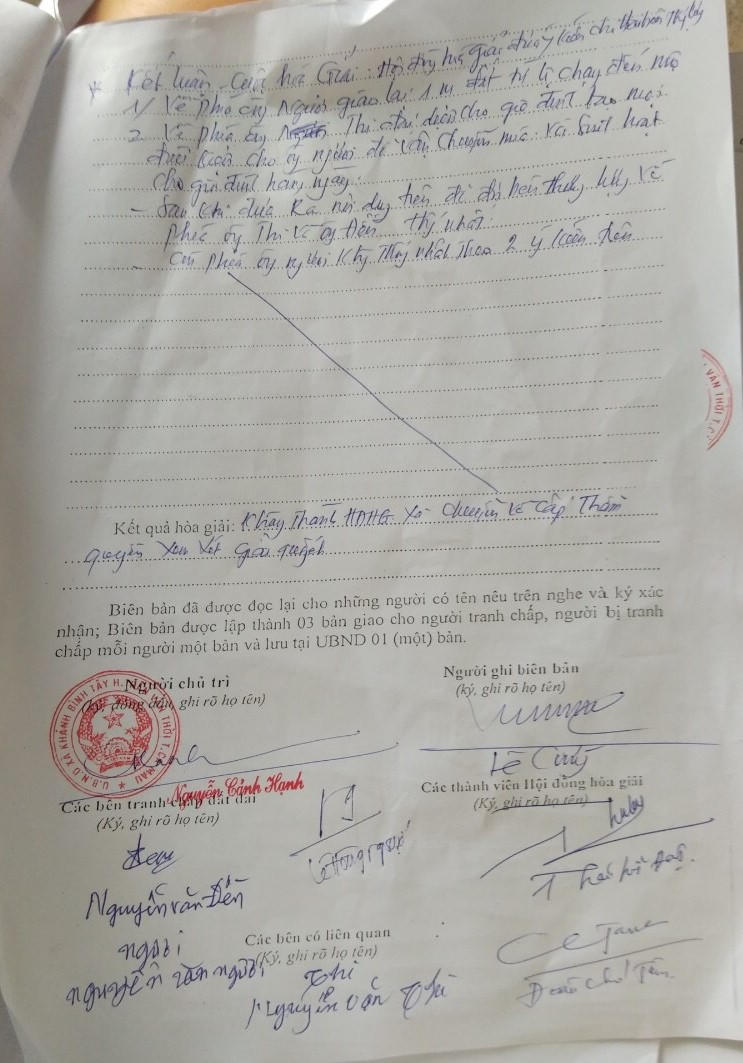 * Kết luận cuộc hòa Giải: Hội đồng hòa giải đưa ý kiến cho hai bên Thấy
1/ Về phía ông Người giao lại 1 m đất từ lộ chạy đến mé
2. Về phía ông Thi đại diện cho gia đình
cho ông người để vận chuyển và sinh hoạt
cho gia đình hàng ngày.
- Sau khi đưa ra nội dung trên để đôi bên thương lượng Về
phía ông Thi Và ông Đến Thống nhất.
- Còn phía ông người Không Thống nhất Theo 2 ý kiến trên
Kết quả hòa giải: Không Thành HĐHG xã chuyển Về cấp Thẩm
quyền xem xét giải quyết
Biên bản đã được đọc lại cho những người có tên nêu trên nghe và ký xác
nhận; Biên bản được lập thành 03 bản giao cho người tranh chấp, người bị tranh
chấp mỗi người một bản và lưu tại UBND 01 (một) bản.
Người chủ trì
(ký, đóng dấu, ghi rõ họ tên)
U.B.N.D XÃ KHÁNH BÌNH TÂY H. VĂN THỜI T. CÀ MAU
Nguyễn Cảnh Hạnh
Người ghi biên bản
(ký, ghi rõ họ tên)
Lê
Các bên tranh chấp đất đai
(Ký, ghi rõ họ tên)
Nguyễn văn Đến
người
nguyễn văn người
Các thành viên Hội đồng hòa giải
(Ký, ghi rõ họ tên)
Các bên có liên quan
Thi
Nguyễn Văn Thi
VĂN THỜI T.C